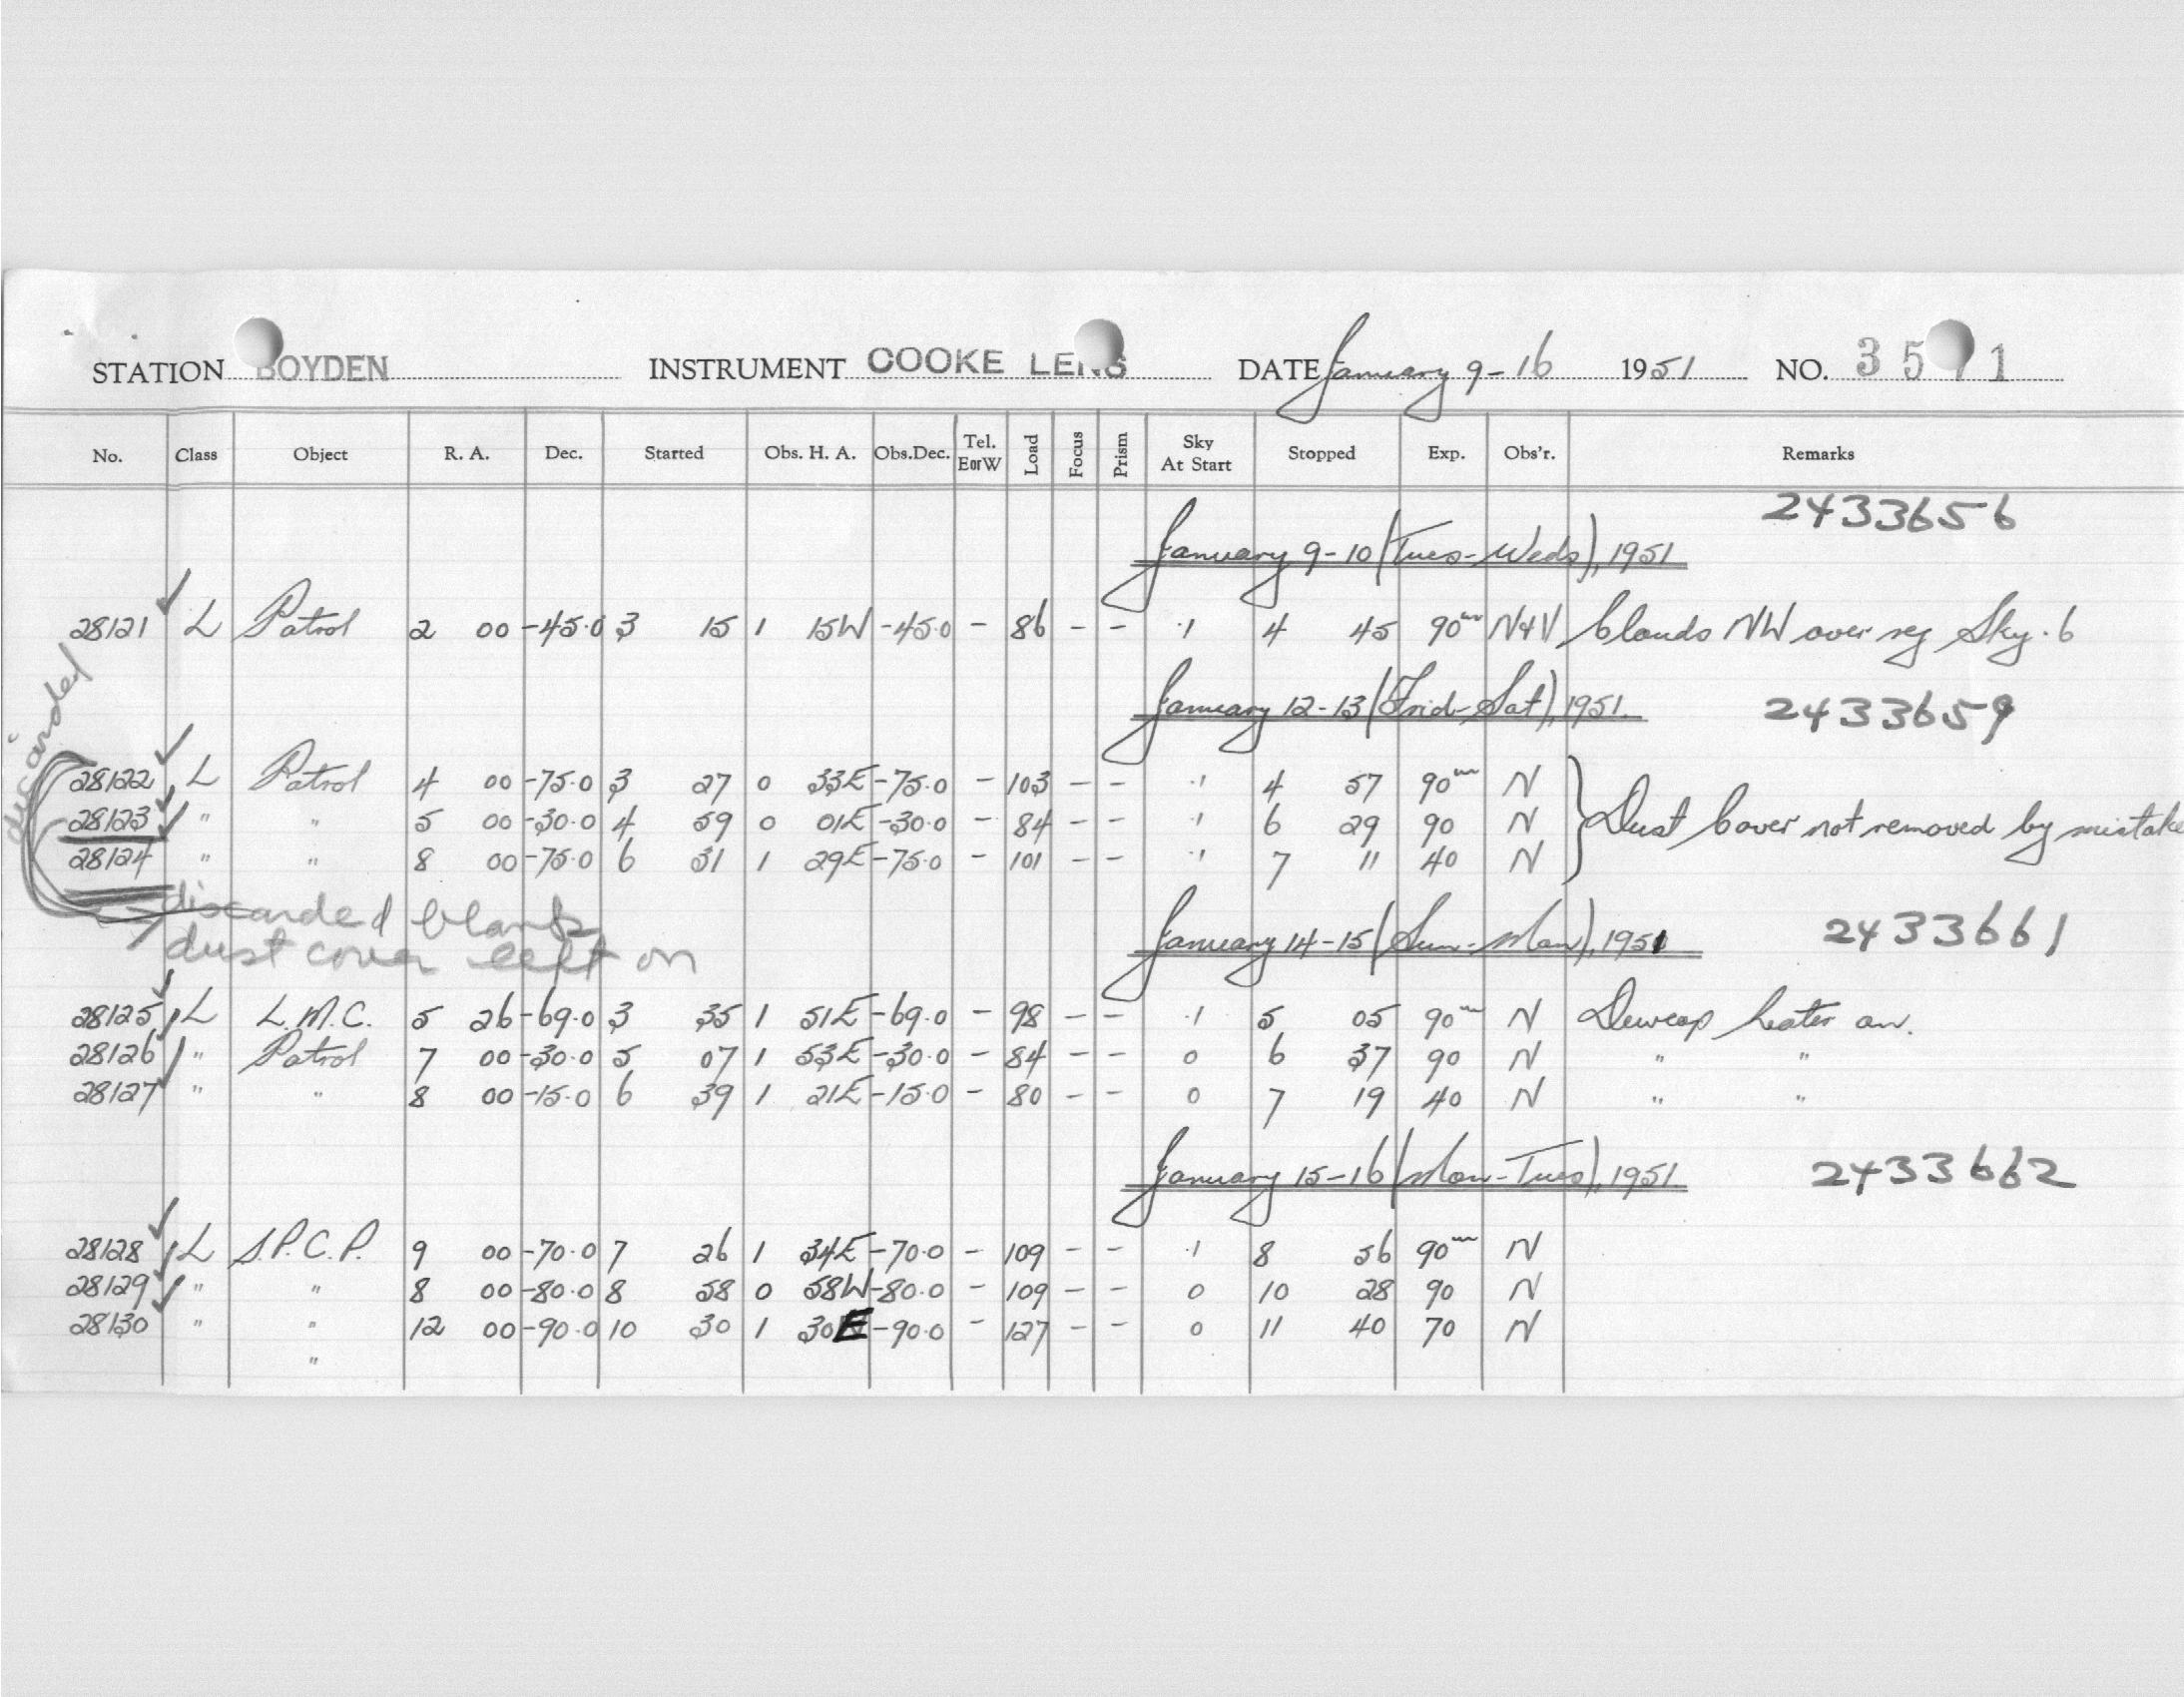 STATION BOYDEN INSTRUMENT COOKE LENS DATE January 9-16 1951 NO. 35 1
No. Class Object R. A. Dec. Started Obs. H. A. Obs.Dec. Tel. EorW Load Focus Prism Sky At Start Stopped Exp. Obs'r. Remarks
2433656
January 9-10 (Tues-Weds), 1951
28121 L Patrol 2 00 -45.0 3 15 1 15W -45.0 - 86 - - .1 4 45 90m N&V Clouds NW over reg Sky .6
discarded
January 12-13 (Frid-Sat), 1951. 2433659
28122 L Patrol 4 00 -75.0 3 27 0 33E -75.0 - 103 - - .1 4 57 90m N
28123 " " 5 00 -30.0 4 59 0 01E -30.0 - 84 - - .1 6 29 90 N } Dust Cover not removed by mistake
28124 " " 8 00 -75.0 6 31 1 29E -75.0 - 101 - - .1 7 11 40 N
discarded blank
dust cover left on
January 14-15 (Sun-Mon), 1951 2433661
28125 L L.M.C. 5 26 -69.0 3 35 1 51E -69.0 - 98 - - .1 5 05 90m N Dewcap heater on.
28126 " Patrol 7 00 -30.0 5 07 1 53E -30.0 - 84 - - 0 6 37 90 N " "
28127 " " 8 00 -15.0 6 39 1 21E -15.0 - 80 - - 0 7 19 40 N " "
January 15-16 (Mon-Tues), 1951. 2433662
28128 L S.P.C.P. 9 00 -70.0 7 26 1 34E -70.0 - 109 - - .1 8 56 90m N
28129 " " 8 00 -80.0 8 58 0 58W -80.0 - 109 - - 0 10 28 90 N
28130 " " 12 00 -90.0 10 30 1 30E -90.0 - 127 - - 0 11 40 70 N
"